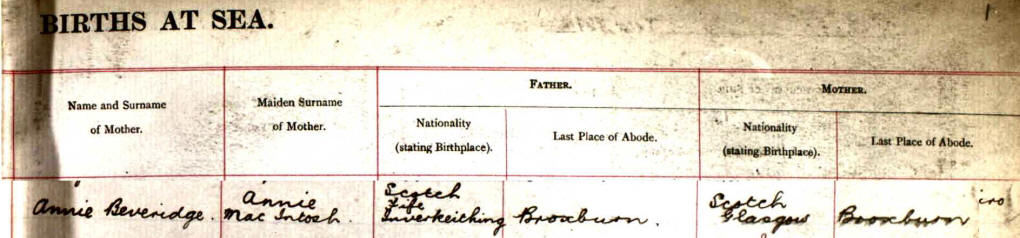 BIRTHS AT SEA.
1
Name and Surname
of Mother.
Maiden Surname
of Mother.
FATHER.
Nationality
(stating Birthplace).
Last Place of Abode.
MOTHER.
Nationality
(stating Birthplace).
Last Place of Abode.
Annie Beveridge.
Annie
Mac Intosh.
Scotch
Fife
Inverkeithing
Broxburn.
Scotch
Glasgow
Broxburn